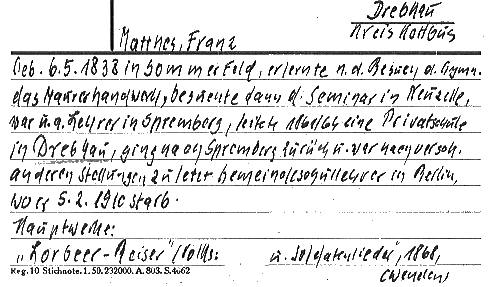 Drebkau
Kreis Kottbus
Matthes, Franz
Geb. 6.5.1838 in Sommerfeld, erlernte n. d. Besuch d. Gymn.
das Maurerhandwerk, besuchte dann d. Seminar in Neuzelle,
war u.a. Lehrer in Spremberg, leitete 1861/64 eine Privatschule
in Drebkau, ging nach Spremberg zurück u. war nach versch.
anderen Stellungen zuletzt Gemeindeschullehrer in Berlin,
wo er 5.2.1910 starb.
Hauptwerke:
„Lorbeer-Reiser" (Volks= u. Soldatenlieder", 1868,
Reg. 10 Stichnote. 1. 50. 232000. A. 803. S. 4062